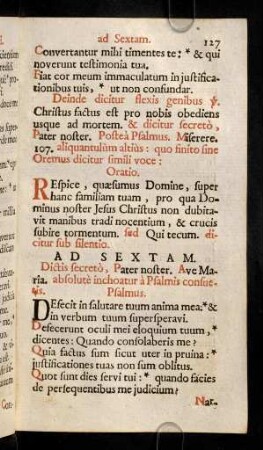 ad Sextam. 127
Convertantur mihi timentes te: * & qui
noverunt testimonia tua.
Fiat cor meum immaculatum in justifica-
tionibus tuis, * ut non confundar.
Deinde dicitur flexis genibus ℣.
Christus factus est pro nobis obediens
usque ad mortem. & dicitur secretò,
Pater noster. Posteà Psalmus. Miserere.
107. aliquantulùm altiùs: quo finito sine
Oremus dicitur simili voce:
Oratio.
REspice, quæsumus Domine, super
hanc familiam tuam, pro qua Do-
minus noster Jesus Christus non dubita-
vit manibus tradi nocentium, & crucis
subire tormentum. sed Qui tecum. di-
citur sub silentio.
AD SEXTAM.
Dictis secretò, Pater noster. Ave Ma-
ria. absolutè inchoatur à Psalmis consue-
tis. Psalmus.
DEfecit in salutare tuum anima mea: * &
in verbum tuum supersperavi.
Defecerunt oculi mei eloquium tuum, *
dicentes: Quando consolaberis me?
Quia factus sum sicut uter in pruina: *
justificationes tuas non sum oblitus.
Quot sunt dies servi tui: * quando facies
de persequentibus me judicium?
Nar-